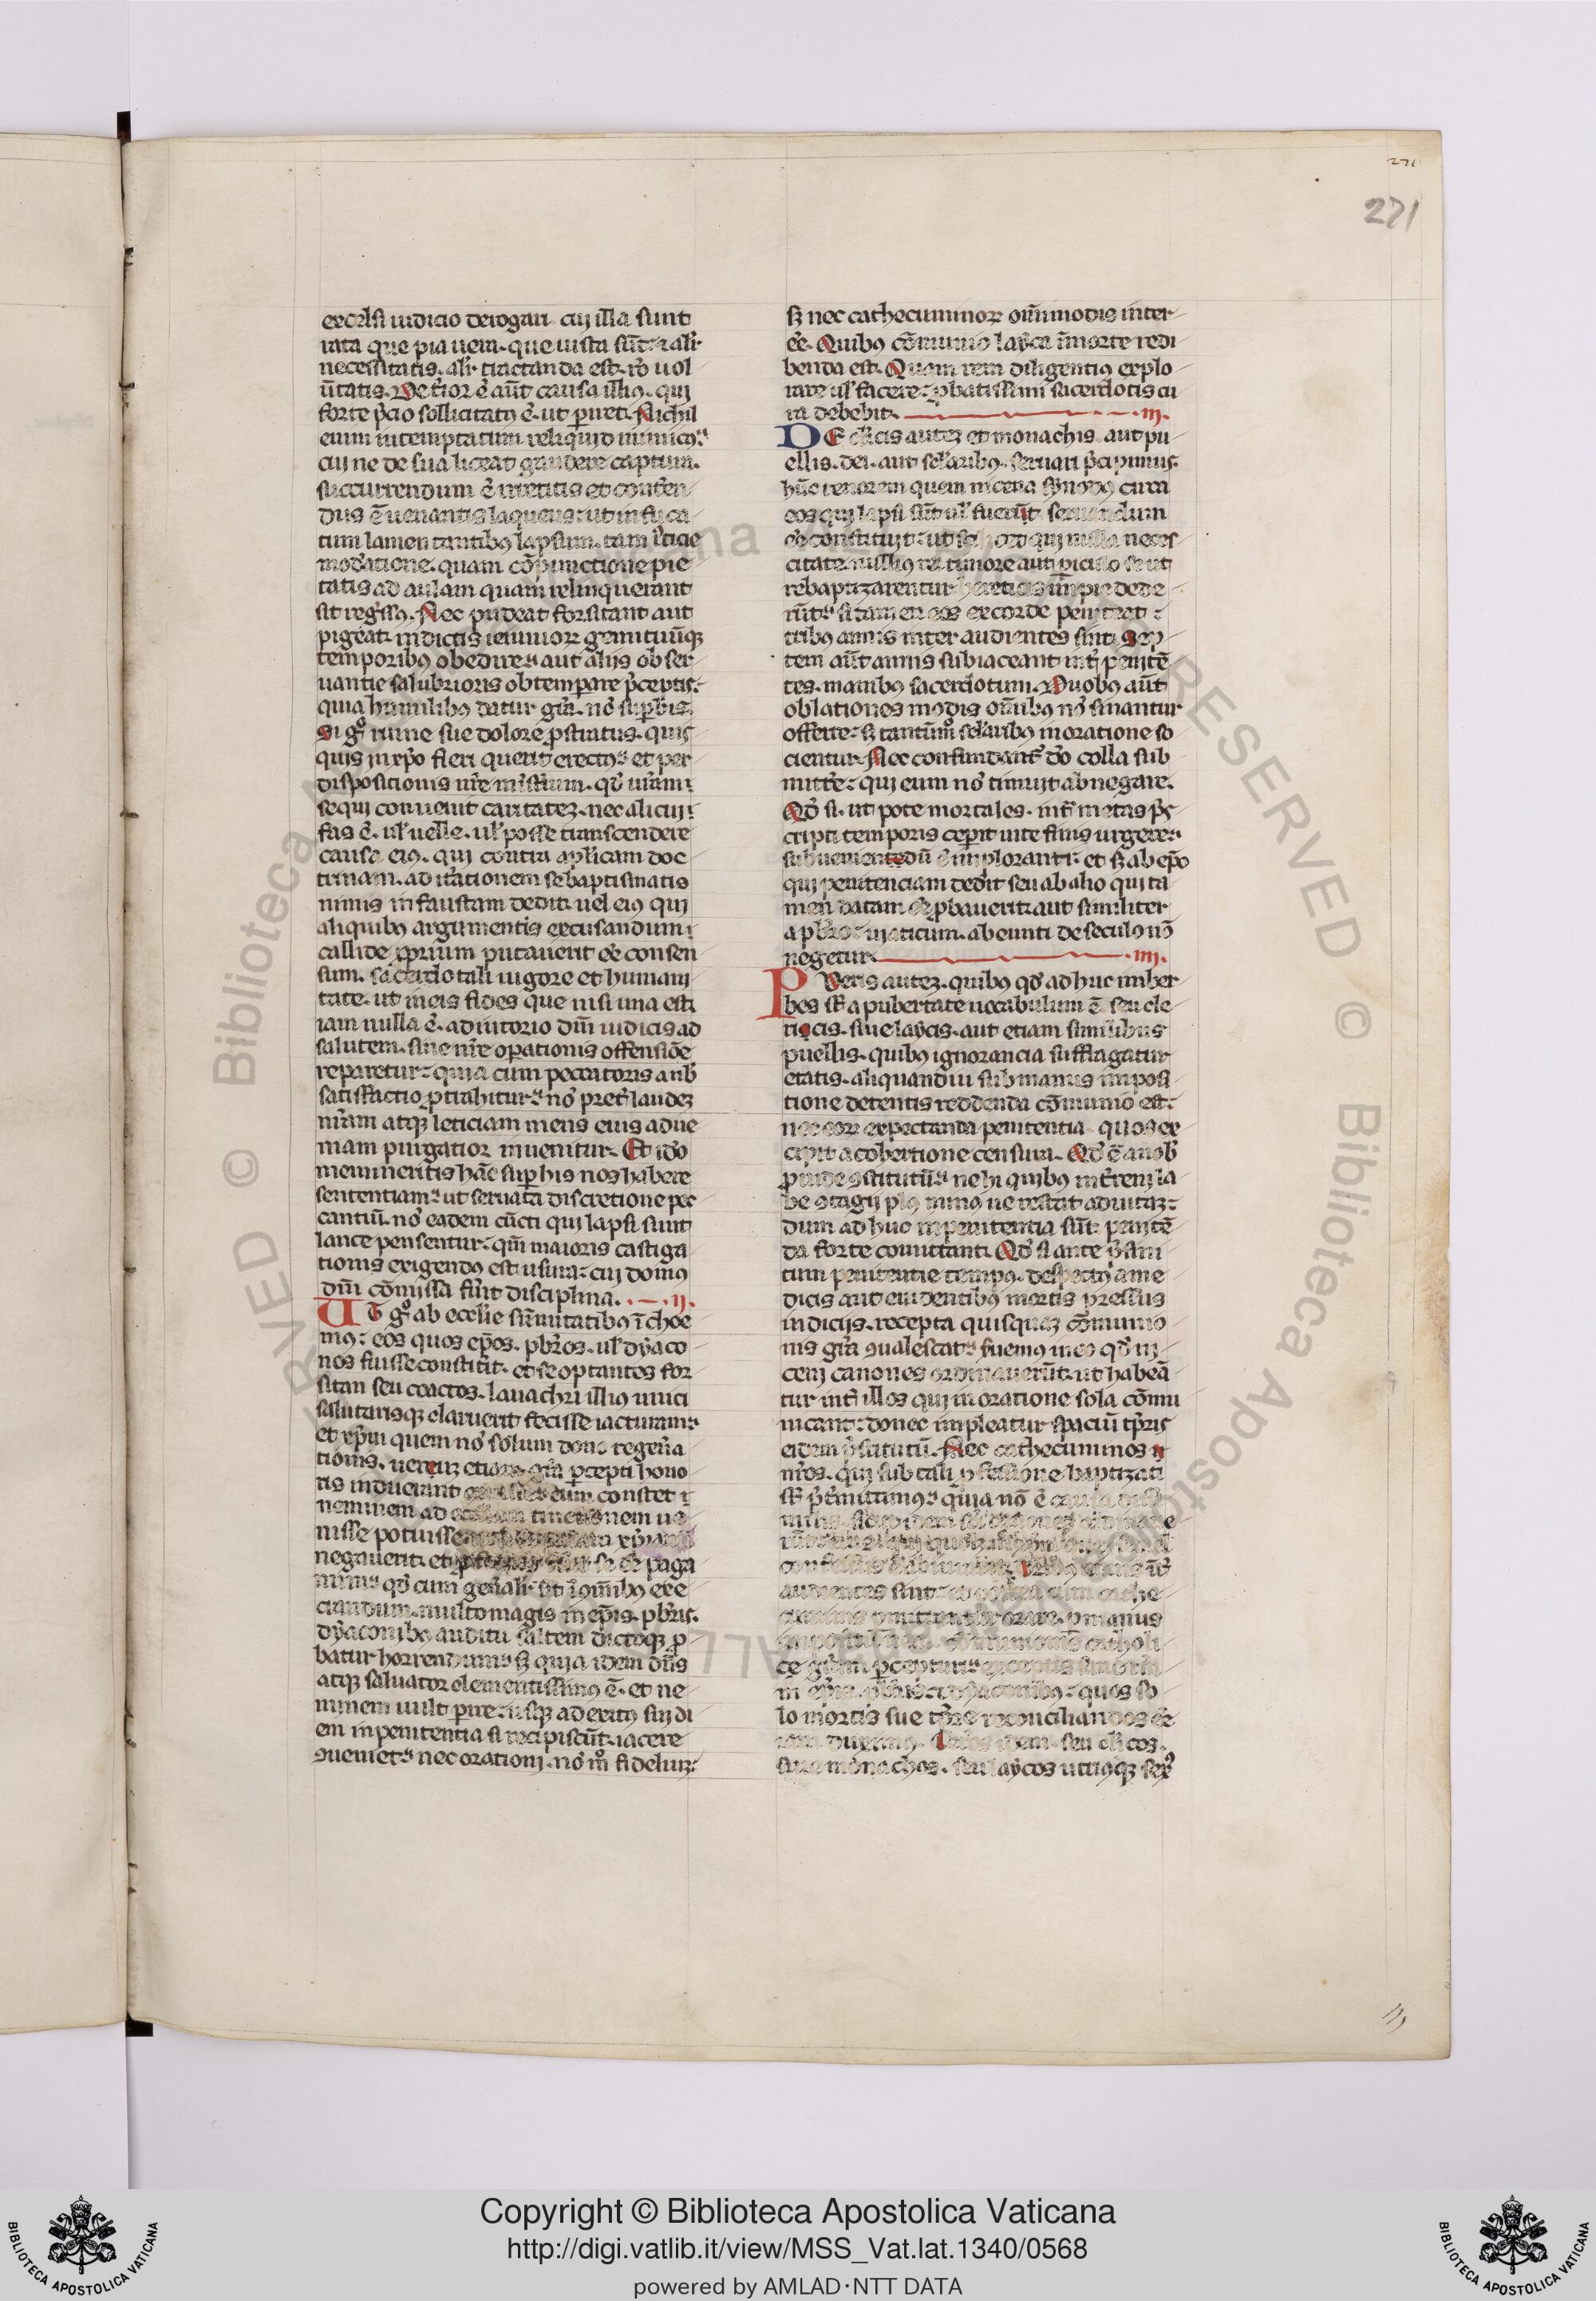 271
271
excelsi iudicio derogari cui illa sunt
rata que pia uera· que iusta sūt· ⁊ alr̄
necessitatis· alr̄ tractanda est· rō uol
ūtatis· Det̄ior ē aūt causa illiꝯ· qui
forte p̄cio sollicitatꝯ ē· ut piret· Nichil
enim intemptatum reliquid inimicꝯ
cui ne de sua liceat gaudere captura·
succurrendum ē irretitis et
dus ē uenantis laqueus ut
tum lamentantibꝯ lapsum· tam iusticie
moderatione· quam cōpunctione pie
tatis ad aulam quam relinquerant
sit regressꝯ· Nec pudeat forsitant aut
pigeat indictis ieiunior gemituūqꝫ
temporibꝯ obedire aut alijs obser
uantie salubrioris obtemꝑare p̄ceptis·
quia humilibꝯ datur gr̄a· nō suꝑbis
Si gͦ ruine sue dolore ꝓstratus· quis
quis in xp̄o fieri querit erectꝯ et per
dispositionis nr̄e mīsterium· qd̄ ur̄am
sequi conuenit caritatez· nec alicui
fas ē· ul̄ uelle· ul̄ posse transcendere
causa eiꝯ· qui contra apl̄icam doc
trinam· ad it̄ationem se baptismatis
nimis infaustam dedit· uel eiꝯ qui
aliquibꝯ argumentis excusandum
callide ꝓprium putauerit eē consen
sum· sacerdotali uigore et humani
tate· ut meis fides que nisi una est
iam nulla ē· adiutorio dn̄i iudicis ad
salutem· sine nr̄e oꝑationis offensiōe
reparetur quia cum peccatoris a nob̄
satisfactio ꝓtrahitur nō pret̄ laudez
nr̄am atqꝫ leticiam mens eius ad ue
niam purgatior inuenitur· Et id̄o
memineritis hāc suꝑ his nos habere
sententiam ut seruata discretione pec
cantiū· nō eadem cūcti qui lapsi sunt
lance pensentur qm̄ maioris castiga
tionis exigendꝯ est usura cui domꝯ
dn̄i cōmissa fuit disciplina· ij·
UT gͦ ab eccl̄ie sūmitatibꝯ īchoe
mꝯ eos quos ep̄os· pbr̄os· ul̄ dyaco
nos fuisse constit̄it· et se optantes for
sitan seu coactos· lauachri illiꝯ unici
salutarisqꝫ claruerit fecisse iacturam
et xp̄m quem nō solum dono regen̄a
tionis· uerum etiam gr̄a ꝑcepti hono
ris induerant cum constet
neminem ad tinctionem ue
nisse potuisse xp̄ianū
negauerit· et se eē paga
num qd̄ cum gen̄alr̄ sit ī om̄ibꝯ exe
crandum· multo magis in ep̄is· pbr̄is·
dyaconibꝯ auditu saltem dictoqꝫ ꝓ
batur horrendum sꝫ quia idem dn̄s
atqꝫ saluator clementissimꝯ ē· et ne
minem uult ꝑire usqꝫ ad exitꝯ sui di
em in penitentia si recipiscūt· iacere
ꝯueniet nec orationi· nō mͦ fidelium·
sꝫ nec cathecuminor om̄imodis inter
ee· Quibꝯ cōmunio layca ī morte redi
benda est· Quam rem diligentiꝯ explo
rare ul̄ facere ꝓbatissimi sacerdotis cu
ra debebit· iij·
DE cl̄icis autez et monachis aut pu
ellis· dei· aut sel̄aribꝯ· seruari p̄cipimus
hūc tenorem quem nicena synodꝯ circa
eos qui lapsi sūt ul̄ fuerūt seruandum
ee constituit ut qui nulla neces
citate nulliꝯ rei timore aut ꝑiculo se ut
rebaptizarentur hereticis impie dede
rūt si tamen eos ex corde penitet
tribꝯ annis inter audientes sint Sep
tem aūt annis subiaceant int̄ penitē
tes· manibꝯ sacerdotum· Duobꝯ aūt
oblationes modis om̄ibꝯ nō sinantur
offerre sꝫ tantūm sel̄aribꝯ in oratione so
cientur· Nec confundant̄ d̄o colla sub
mitte̅re qui eum nō timuit abnegare·
Qd̄ si· ut pote mortales· int̄ metas p̄s
cripti temporis ceperit uite finis urgere
subueniendū ē imploranti et sꝫ ab ep̄o
qui penitenciam dedit seu ab alio qui ta
men datam ee ꝓbauerit aut similiter
a pbr̄o uiaticum· abeunti de seculo nō
negetur· iiij·
PUeris autez· quibꝯ qd̄ ad huc imber
bes sūt a pubertate uocabulum ē seu cle
ricis· siue laycis· aut etiam similibus
puellis· quibꝯ ignorancia suffragatur
etatis· aliquandiu sub manus imposi
tione detentis reddenda cōmunio est
nec eorum expectanda penitentia quos ex
cipit a cohertione censura· Qd̄ ē a nob̄
ꝓinde ꝯstitutū ne hi quibꝯ int̄ren la
be ꝯtagij plꝯ minꝯ ne restat ad uitaz
dum ad huc in penitentia sūt penitē
da forte comittant· Qd̄ si ante p̄fini
tum penitentie tempꝯ· despectꝯ a me
dicis aut euidentibꝯ mortis pressus
indicijs· recepta quisquaz cōmunio
nis gr̄a ꝯualescat seruemꝯ in eo qd̄ ni
ceni canones ordinauerūt· ut habeā
tur int̄ illos qui in oratione sola cōmu
nicant donec impleatur spaciū tp̄ris
eidem p̄stitutū· Nec cathecuminos
nr̄os· qui sub tali ꝓfessione baptizati
sūt p̄termittimꝯ quia nō ē causa
audientes sint
orare· ꝑ manus
impositionem cōmunionē catholi
ce gr̄am ꝑcepturi exceptis
in ep̄is· pbr̄is ⁊ dyaconibꝯ quos so
lo mortis sue tp̄re reconciliandos eē
iam duximꝯ· seu cl̄icos·
siue monachos· seu laycos utriusqꝫ sexꝯ
Copyright © Biblioteca Apostolica Vaticana
http://digi.vatlib.it/view/MSS_Vat.lat.1340/0568
powered by AMLAD·NTT DATA